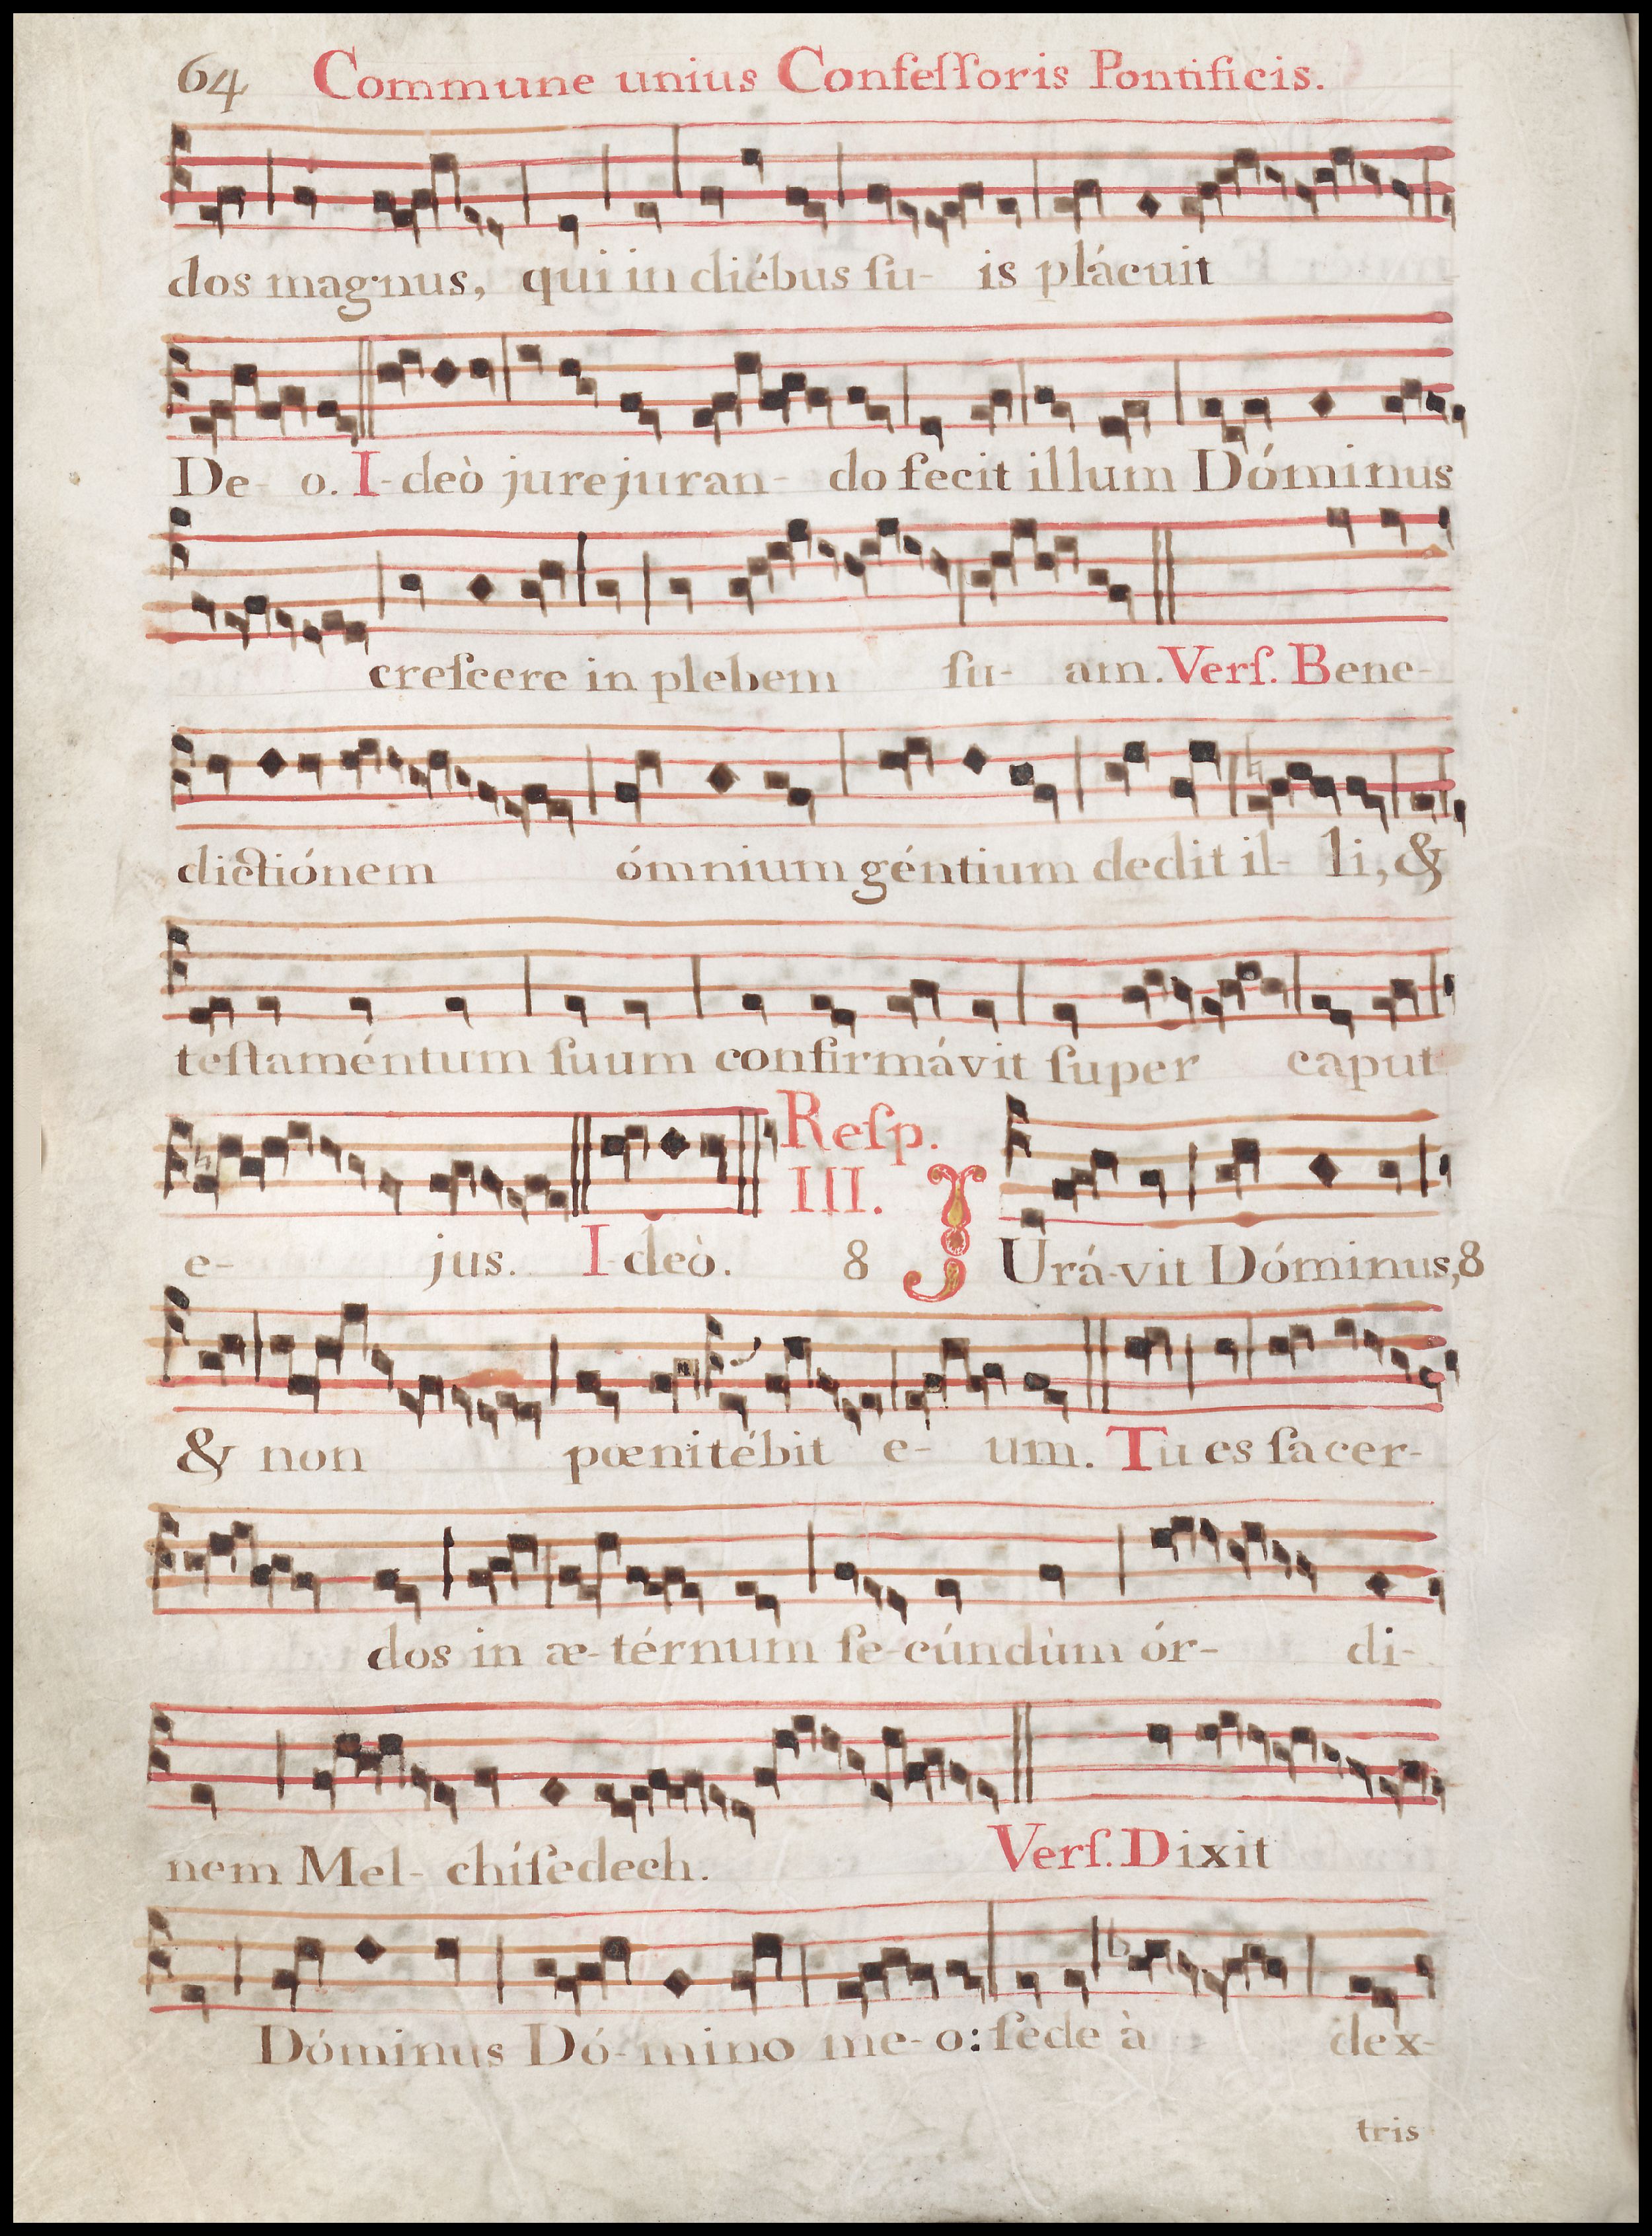 64 Commune unius Confeſſoris Pontificis.
dos magnus, qui in diébus ſu- is plácuit
De- o. I-deò jurejuran- do fecit illum Dóminus
creſcere in plebem ſu- am. Verſ. Bene-
dictiónem ómnium géntium dedit il- li, &
teſtaméntum ſuum confirmávit ſuper caput
e- jus. I-deò. 8 Reſp. III. JUrá-vit Dóminus, 8
& non pœnitébit e- um. Tu es ſacer-
dos in æ-térnum ſe-cúndùm ór- di-
nem Mel- chíſedech. Verſ. Dixit
Dóminus Dó-mino me-o: ſede à dex-
tris